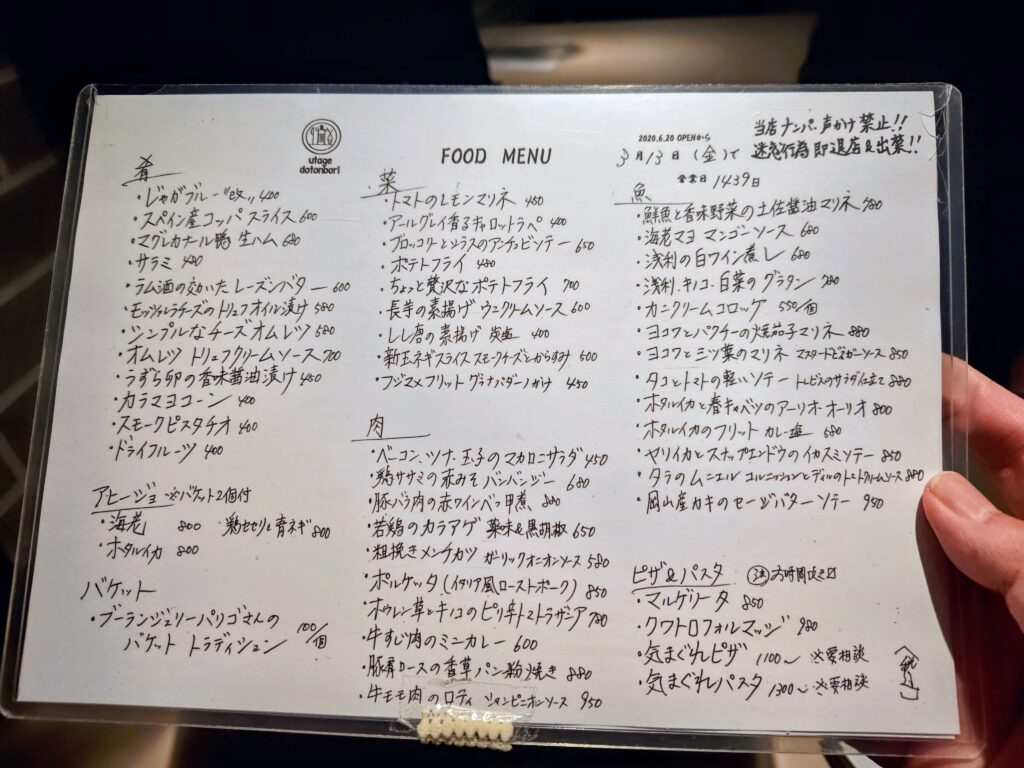 utage
dotonbori
FOOD MENU
2020.6.20 OPENから
3月13日(金)で
営業日 1439日
当店ナンパ、声かけ禁止!!
迷惑行為 即退店&出禁!!
肴
・じゃがブルー"改" 400
・スペイン産コッパ スライス 600
・マグレカナール鴨 生ハム 680
・サラミ 480
・ラム酒の効いたレーズンバター 600
・モッツァレラチーズのトリュフオイル漬け 580
・シンプルなチーズオムレツ 580
・オムレツ トリュフクリームソース 700
・うずら卵の香味醤油漬け 450
・カラマヨコーン 400
・スモークピスタチオ 400
・ドライフルーツ 400
アヒージョ ※バケット2個付
・海老 800 ・鶏せせりと青ネギ 800
・ホタルイカ 800
バケット
・ブーランジュリーパリゴさんの
バケット トラディション 100/個
菜
・トマトのレモンマリネ 450
・アールグレイ香るキャロットラペ 400
・ブロッコリーとシラスのアンチョビソテー 650
・ポテトフライ 480
・ちょっと贅沢なポテトフライ 700
・長芋の素揚げ ウニクリームソース 600
・しし唐の素揚げ 炭塩 400
・新玉ネギスライス スモークチーズとからすみ 600
・フジマメフリット グラナパダーノがけ 450
肉
・ベーコン、ツナ、玉子のマカロニサラダ 450
・鶏ササミの赤みそバンバンジー 680
・豚バラ肉の赤ワインべっ甲煮 880
・若鶏のカラアゲ 薬味&黒胡椒 650
・粗挽きメンチカツ ガーリックオニオンソース 580
・ポルケッタ(イタリア風ローストポーク) 850
・ホウレン草とキノコのピリ辛トマトラザニア 780
・牛すじ肉のミニカレー 600
・豚肩ロースの香草パン粉焼き 880
・牛モモ肉のロティ シャンピニオンソース 950
魚
・鮮魚と香味野菜の土佐醤油マリネ 780
・海老マヨ マンゴーソース 680
・浅利の白ワイン蒸し 680
・浅利、キノコ、白菜のグラタン 780
・カニクリームコロッケ 550/個
・ヨコワとパクチーの焼茄子マリネ 880
・ヨコワと三ツ葉のマリネ マスタードビネガーソース 850
・タコとトマトの軽いソテー トレビスのサラダ仕立て 880
・ホタルイカと春キャベツのアーリオ・オーリオ 800
・ホタルイカのフリット カレー塩 680
・ヤリイカとスナップエンドウのイカスミソテー 850
・タラのムニエル コルニッションとディルのトマトクリームソース 880
・岡山産カキのセージバターソテー 950
ピザ&パスタ
・マルゲリータ 850
・クワトロフォルマッジ 980
・気まぐれピザ 1100〜 ※要相談
・気まぐれパスタ 1300〜 ※要相談